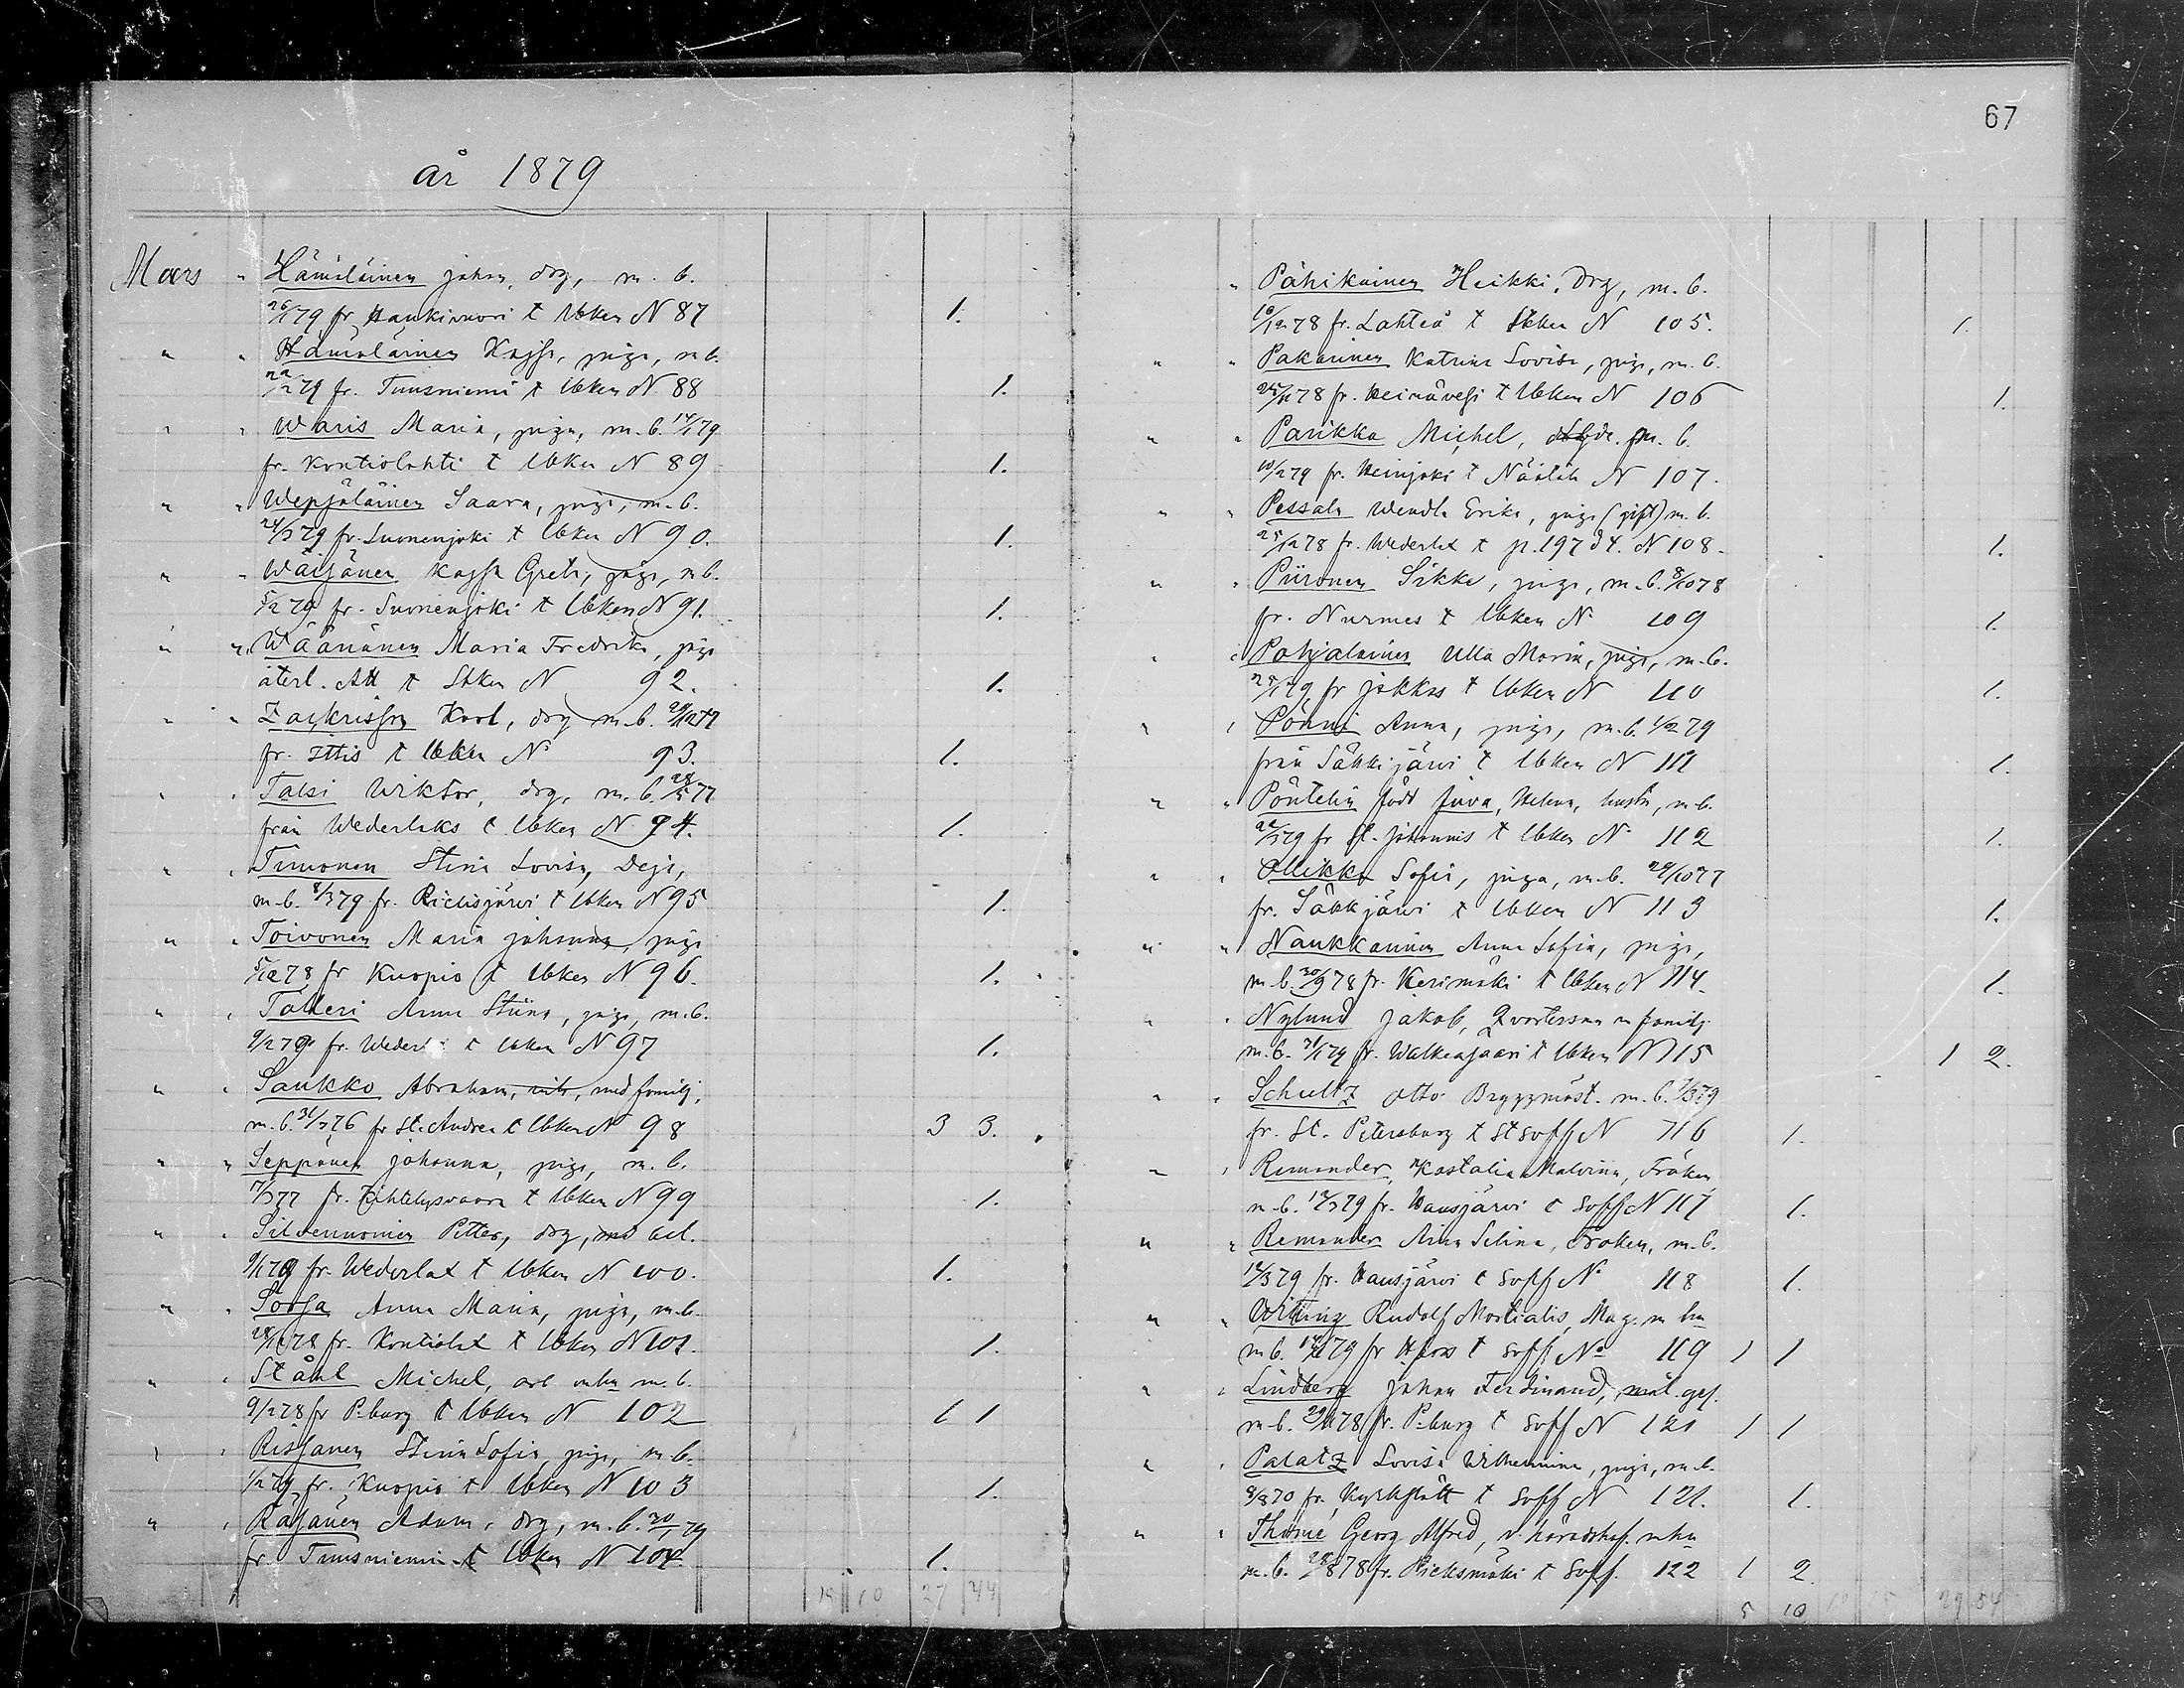 67
år 1879
Mars " Hämäläinen Johan, drg, m. b.
26/1 79 fr Haukivuori t Ubken N 87 1.
" " Hämäläinen Kajsa, piga, m b.
22/2 79 fr. Tuusniemi t Ubken N 88 1.
" " Waris Maria, piga, m. b. 14/1 79
fr. Kontiolahti t Ubken N 89 1.
" " Wepsäläinen Saara, piga, m. b.
24/3 79 fr. Suonenjoki t Ubken N 90. 1.
" " Waijänen Kajsa Greta, piga, m b.
5/2 79 fr. Suonenjoki t Ubken N 91. 1.
" " Wäänänen Maria Fredrika, piga
återl. Att t Sbken N 92. 1.
" " Zackrisson Karl, drg m. b.
fr. Ittis t Ubken N 93. 1.
" " Talsi Wiktor, drg, m. b. 28/5 77
från Wederlaks t Ubken N 94. 1.
" " Timonen Stina Lovisa, Deja,
m. b. 8/3 79 fr. t Ubken N 95 1.
" " Toivonen Maria Johanna, piga
5/12 78 fr Kuopio t Ubken N 96. 1.
" " Tätteri Anna Stiina, piga, m. b.
9/2 79 fr. t Ubken N 97 1.
" " Saukko Abraham, med familj,
m. b. 31/7 76 fr St. Andrea t Ubken N 98 3 3.
" " Seppänen Johanna, piga, m. b.
7/3 77 fr. Tohtelysvaara t Ubken N 99 1.
" " Silvennoinen Petter, drg,
9/1 79 fr. Wederlax t Ubken N 100. 1.
" " Sorsa Anna Maria, piga, m. b.
fr. Kontiolax t Ubken N 101. 1.
" " Ståhl Michel, arb m hu m. b.
9/2 78 fr P:burg t Ubken N 102 1 1
" " Rissanen Stina Sofia, piga, m b.
1/2 79 fr. Kuopio t Ubken N 103 1.
" " Räsänen Adam, drg, m. b. 30/1 79
fr. Tuusniemi t Ubken N 104. 1.
19 10 27 44
" Pähikäinen Heikki, Drg, m. b.
10/12 78 fr. Lahteä t Sbken N 105. 1.
" " Pakarinen Katrina Lovisa, piga, m. b.
25/11 78 fr. Heinävesi t Ubken N 106 1.
" " Parikka Michel, m. b.
10/2 79 fr. Heinjoki t N 107.
" " Pessala Wendla Erika, piga (gift) m. b.
25/12 78 fr. Wederlax t p. 197 d 4. N 108. 1.
" " Piironen Sikke, piga, m. b. 8/10 78
fr. Nurmes t Ubken N 109 1.
" " Pohjalainen Ulla Maria, piga, m. b.
25/1 79 fr Jokkas t Ubken N 110 1.
" " Pönni Anna, piga, m. b. 1/2 79
från Säkkijärvi t Ubken N 111 1.
" " Pöntelin född Juva, Helena, hustru, m b.
22/3 79 fr St. Johannis t Ubken N 112 1.
" " Ollikka Sofia, piga, m. b. 29/10 77
fr. Säkkjärvi t Ubken N 113 1.
" " Naukkarinen Anna Sofia, piga,
m b. 30/9 78 fr. Kerimäki t Ubken N 114. 1.
" " Nylund Jakob, m familj
m. b. 31/1 79 fr. Walkeasaari t Ubken N 115 1 2.
" " Schultz Otto Byggmäst. m. b. 7/3 79
fr. St. Petersburg t St Soff N 116 1.
" " Remander, Kastalia Malvina, Fröken,
m. b. 12/3 79 fr. Hausjärvi t Soff N 117 1.
" " Remander Aina Selina, Fröken, m. b.
12/3 79 fr. Hausjärvi t Soff N 118 1.
" " Witting Rudolf Martialis, Mag. m hu
m b. 14/2 79 fr H:fors t Soff N 119 1 1
" " Lindberg Johan Ferdinand, mål. ges.
m. b. 29/11 78 fr. P:burg t Soff N 120 1 1
" " Palatz Lovisa Wilhelmina, piga, m. b.
8/8 70 fr. Kyrkslätt t Soff N 121. 1.
" " Thomé Georg Alfred, v. häradshöf. m hu
m. b. 28/8 78 fr. Pieksmäki t Soff. 122 1 2.
5 10 29 54